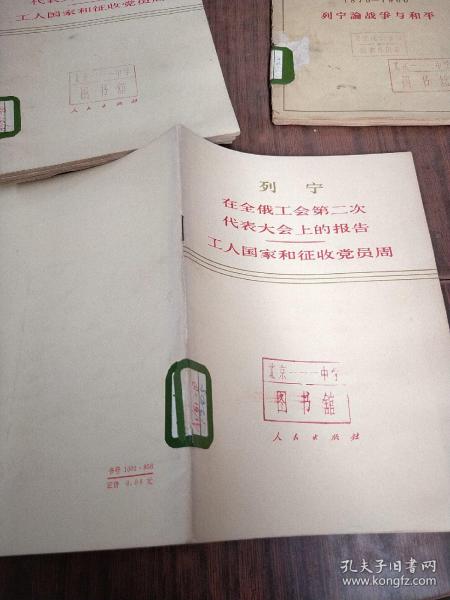 代表大
工人国家和征收党员周
图书馆
人民出版社
1870-1960
列宁論战争与和平
列宁
在全俄工会第二次
代表大会上的报告
工人国家和征收党员周
北京一一一中学
图书舘
人民出版社
书号 1001·856
定价 0.06 元
孔夫子旧书网
www.kongfz.com